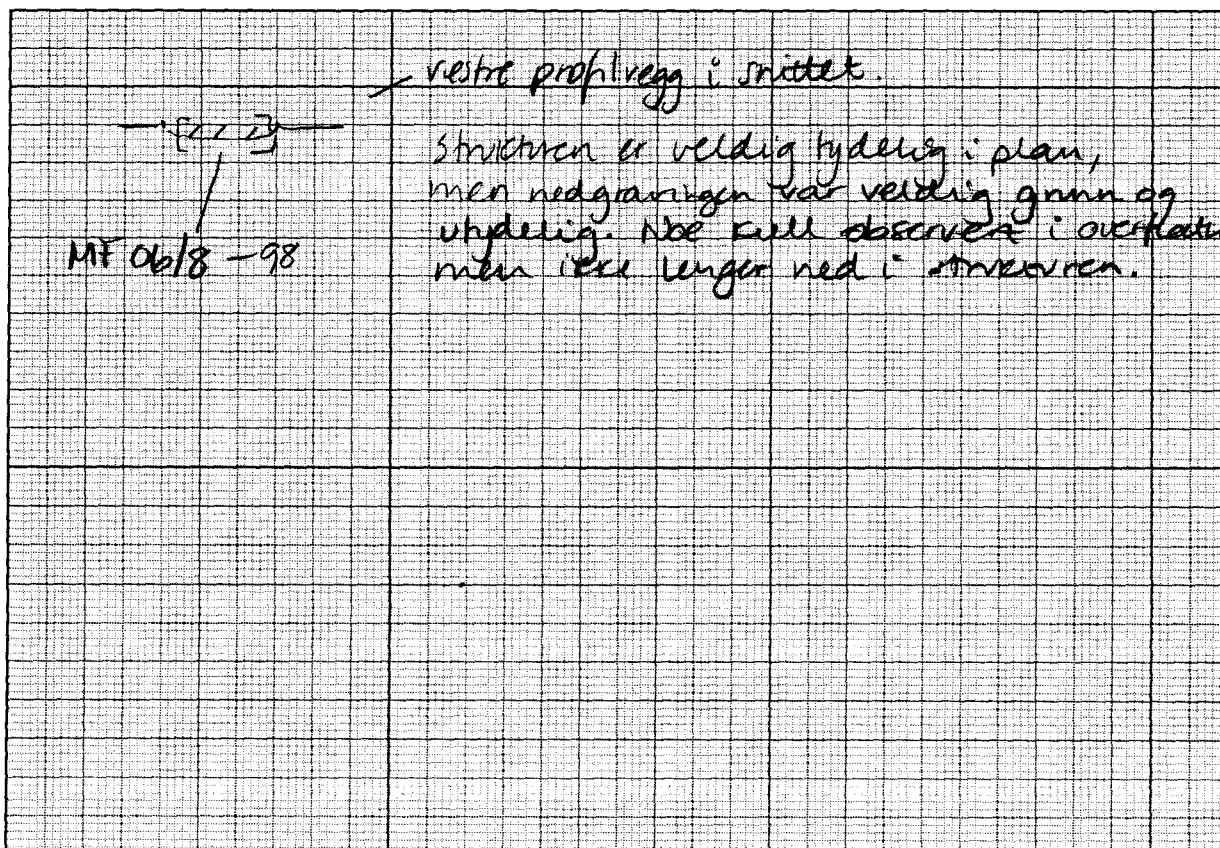 vestre profilvegg i snittet.
strukturen er veldig tydelig i plan,
men nedgravningen var veldig grunn og
utydelig. Noe kull observert i overflaten
men ikke lenger ned i strukturen.
MF 06/8-98